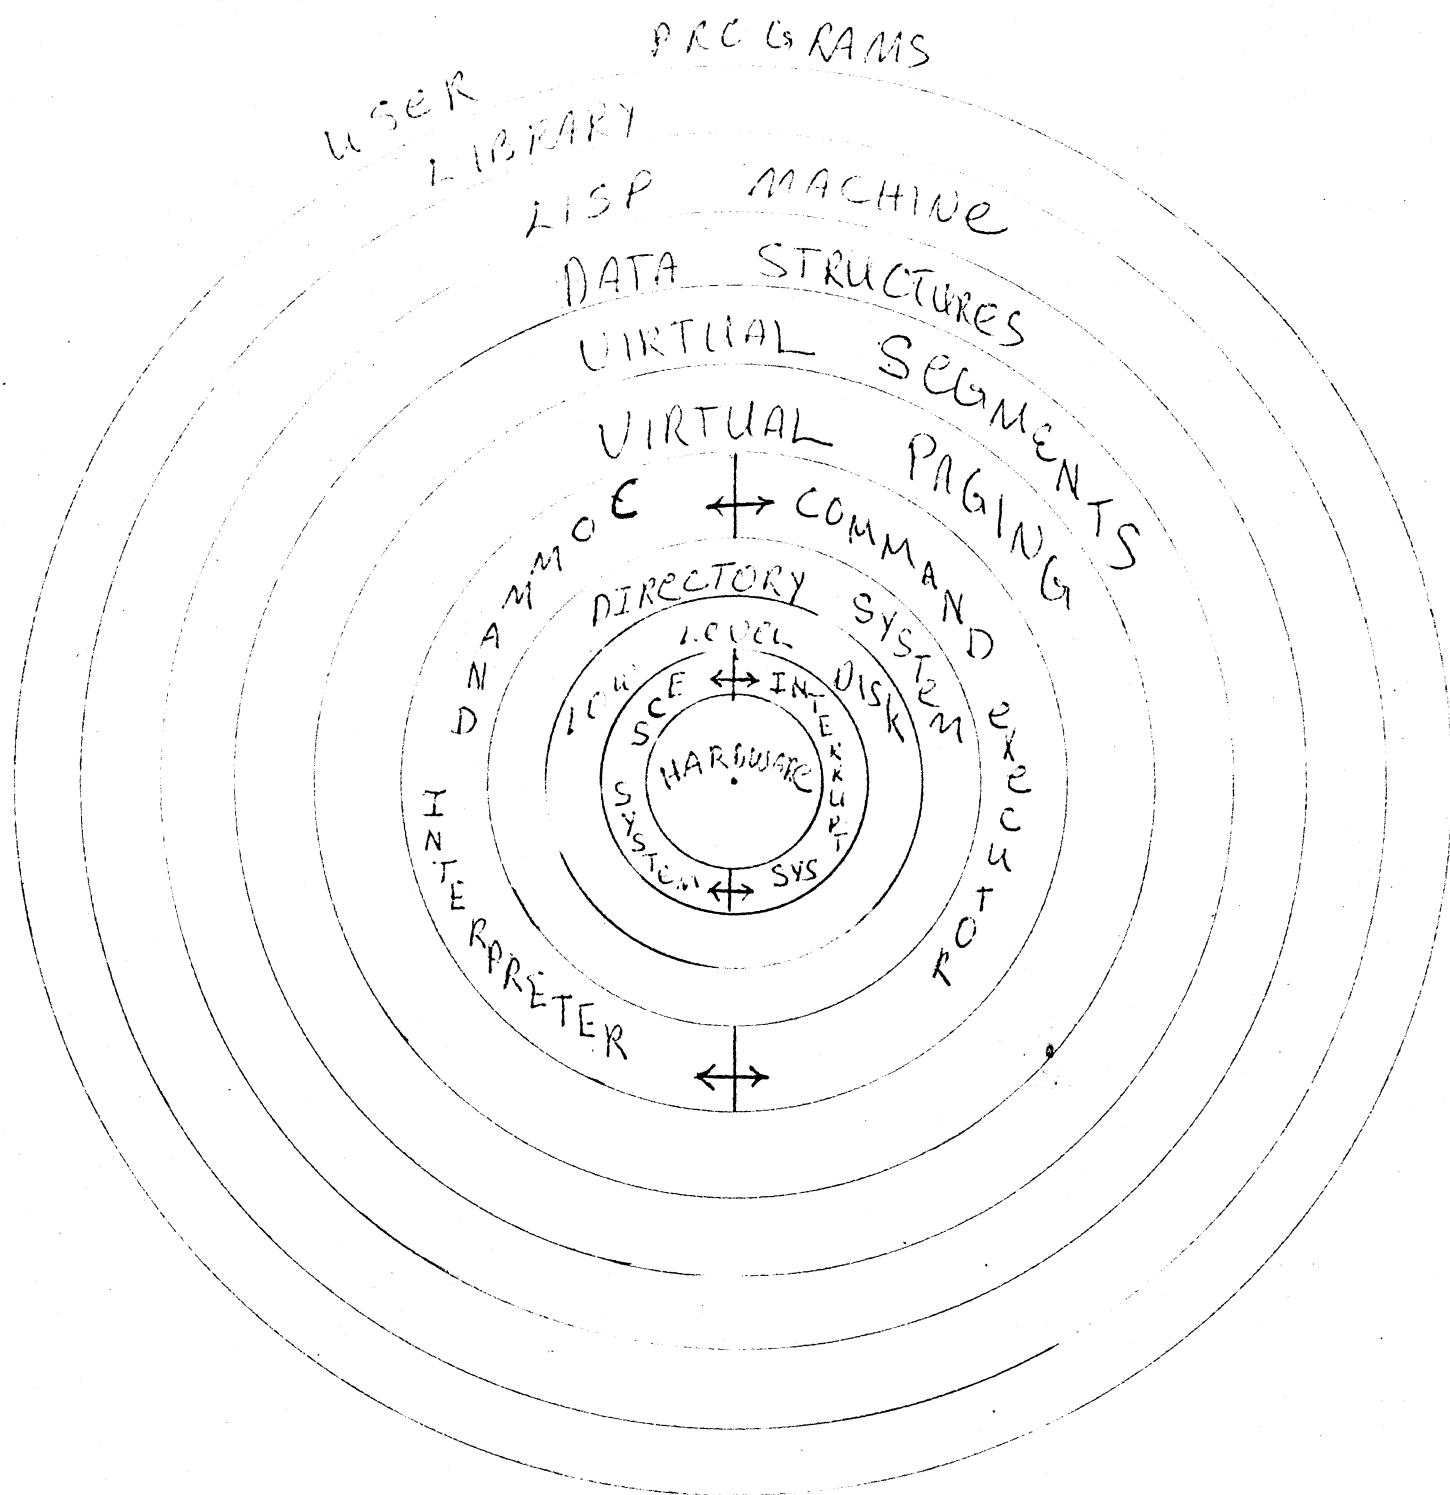 USER PROGRAMS
LIBRARY
LISP MACHINE
DATA STRUCTURES
VIRTUAL SEGMENTS
VIRTUAL PAGING
COMMAND INTERPRETER
COMMAND EXECUTOR
DIRECTORY SYSTEM
LOW LEVEL DISK
SCE SYSTEM
INTERRUPT SYS
HARDWARE